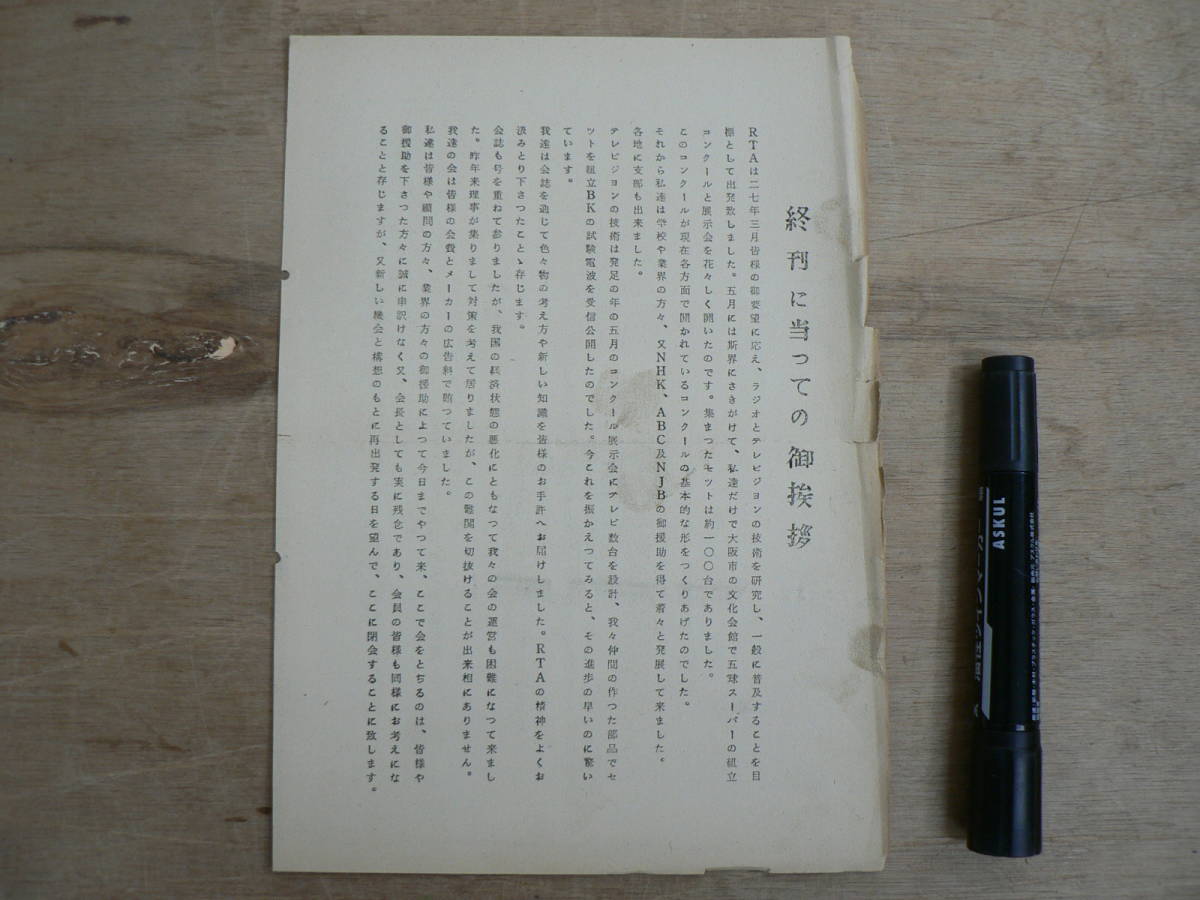 終刊に当っての御挨拶
RTAは二七年三月皆様の御要望に応え、ラジオとテレビジョンの技術を研究し、一般に普及することを目
標として出発致しました。五月には斯界にさきがけて、私達だけで大阪市の文化会館で五球スーパーの組立
コンクールと展示会を花々しく開いたのです。集まつたセツトは約一〇〇台でありました。
このコンクールが現在各方面で開かれているコンクールの基本的な形をつくりあげたのでした。
それから私達は学校や業界の方々、又NHK、ABC及NJBの御援助を得て着々と発展して来ました。
各地に支部も出来ました。
テレビジョンの技術は発足の年の五月のコンクール展示会にテレビ数台を設計、我々仲間の作つた部品でセ
ットを組立BKの試験電波を受信公開したのでした。今これを振かえつてみると、その進歩の早いのに驚い
ています。
我達は会誌を通じて色々物の考え方や新しい知識を皆様のお手許へお届けしました。RTAの精神をよくお
汲みとり下さつたことゝ存じます。
会誌も号を重ねて参りましたが、我国の経済状態の悪化にともなつて我々の会の運営も困難になつて来まし
た。昨年来理事が集りまして対策を考えて居りましたが、この難関を切抜けることが出来相にありません。
我達の会は皆様の会費とメーカーの広告料で賄つていました。
私達は皆様や顧問の方々、業界の方々の御援助によつて今日までやつて来、ここで会をとぢるのは、皆様や
御援助を下さつた方々に誠に申訳けなく又、会長としても実に残念であり、会員の皆様も同様にお考えにな
ることと存じますが、又新しい機会と構想のもとに再出発する日を望んで、ここに閉会することに致します。
ASKUL